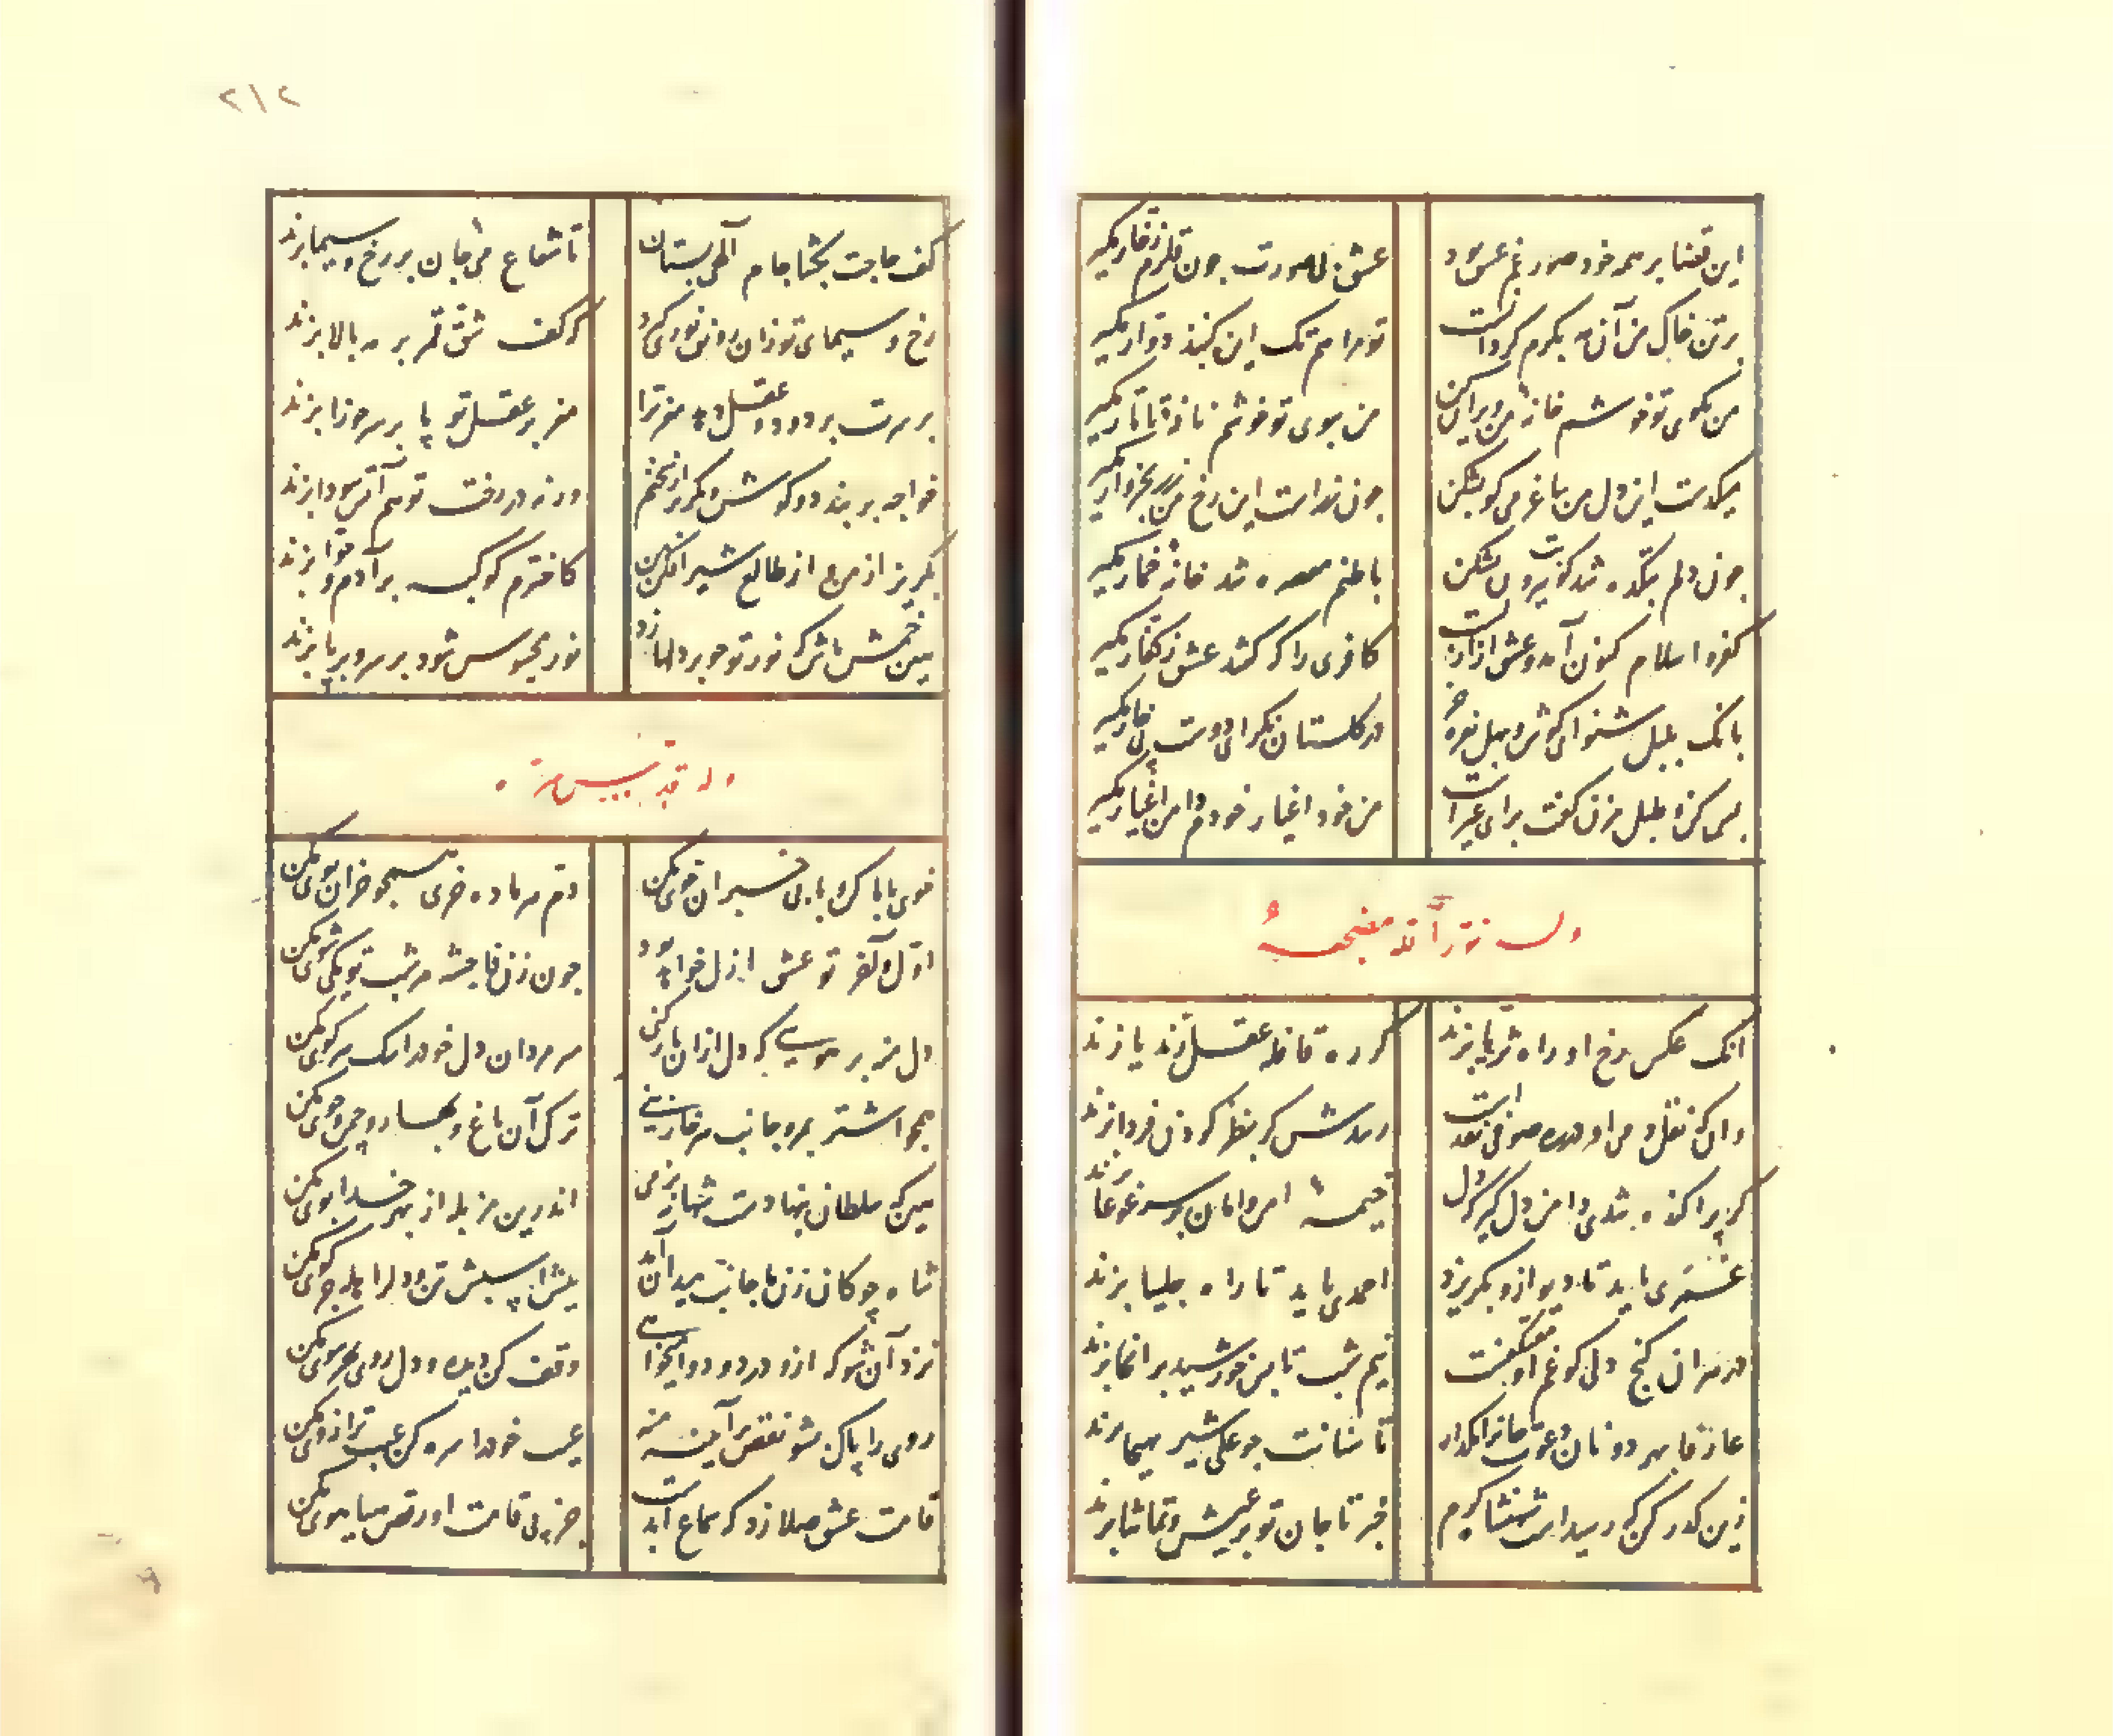 این قضا بر سر خود صورت غم عشق بود
عشق بی صورت چون قلزم زخار مگیر
بر تن خاک من آن مه بکرم کرد است
تو مرا هم تک این کنبذ دوار مگیر
من بکوی تو خوشم خانه من ویران کن
من ببوی تو خوشم نافه تاتار مگیر
میکدست این دل من ساغر می کو بشکن
چون زراست این رخ من زر بخروار مگیر
چون دلم بتکده شد کو بت
باطنم معصره شد خانه خمار مگیر
کفر و اسلام کنون آمد و عشق از ازلست
کافری را که کشد عشق ز کفار مگیر
بانک بلبل شنو ای کوش و بهل نعره خر
در کلستان نکر ای دوست پی خار مگیر
بس کن و طبل مزن کفت برای غیرات
من خود اغیار خودم دامن اغیار مگیر
وله نور الله مضجعه
انک عکس رخ او راه ثریا بزند
کر ره قافله عقل زند یا زند
وان که نقل و می او در ره صوفی نقد است
رسدش کر بنظر کردن فردا بزند
کر پراکنده شدی دامن دل کیر که دل
خیمه امن و امان بر سر غوغا بزند
عنتری باید تا دیو ازو بکریزد
احمدی باید تا راه چلیپا بزند
در سران کنج دلی کو غم او معتکفست
نیم شب تابش خورشید بر انجا بزند
عارفا بهر دو نان دعوت جانرا مکذار
تا سنانت چو علی شیر هیجا بزند
زین کذر کن که رسید است شهنشاه کرم
خیز تا جان تو بر عیش و تماشا بزند
۲۱۲
کف حاجت بکشا جام الهی بستان
تا شعاع می جان بر رخ و سیما بزند
رخ و سیمای تو زان رونق نوری کیرد
کز کف شق قمر بر مه بالا بزند
بر سرت بر دود و عقل دهد مغز ترا
مغز پر عقل تو پا بر سر جوزا بزند
خواجه بر بند دو کوش و بکریز از سخنم
ورنه در رخت تو هم آتش سودا بزند
بکریز از من و از طالع شیر افکن من
کاخترم کوکبه بر آدم و حوا بزند
هین خمش باش که نور تو چو بر دلها زد
نور محسوس شود بر سر و بر پا بزند
وله قدس سره
خوی باما کن و با بی خبران خوی مکن
دم هر ماده خری همچو خران بوی مکن
اول و آخر تو عشق ازل خواهد بود
چون زن فاحشه هر شب تو یکی شوی مکن
دل منه بر هوسی که دل ازان بر نکنی
سر مردان دل خود را سک هر کوی مکن
همچو اشتر بمرو جانب هر خاربنی
ترک آن باغ و بهار و چمن و جوی مکن
هین که سلطان بنهادست شهانه بزمی
اندرین مزبله از بهر خدا بوی مکن
شاه چوکان زن ما جانب میدان آمد
پیش اسپش تن و دل را بجز کوی مکن
نزد آن شو که ازو درد و دوا میخواهی
وقف کن دیده و دل روی بهر سوی مکن
روی را پاک بشو نقص بر آینه منه
عیب خود را سره کن عیب ترازوی مکن
قامت عشق صلا زد که سماع ابدست
جز پی قامت او رقص هیاهوی مکن